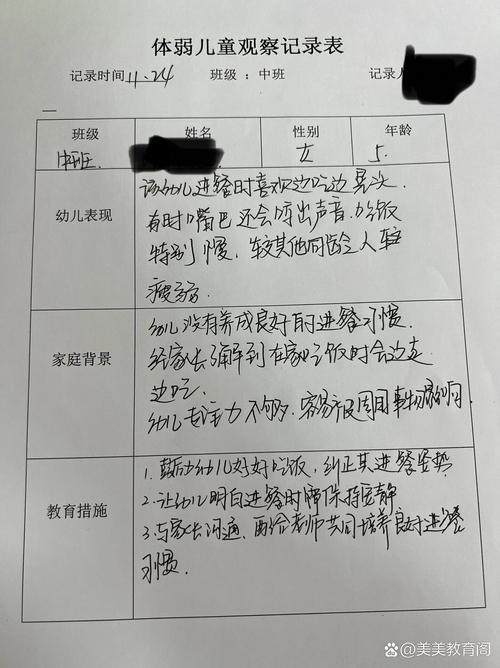 体弱儿童观察记录表
记录时间 11.24 班级：中班 记录人
一
班级 姓名 性别 年龄
中班 女 5.
幼儿表现
该幼儿进餐时喜欢边吃边晃头.
有时嘴巴还会哼出声音.吃饭
特别慢,较其他同龄人较
瘦弱.
家庭背景
幼儿没有养成良好的进餐习惯.
经家长了解到在家吃饭时会边走
边吃.
幼儿专注力不够,容易被周围事物影响.
教育措施
1.鼓励幼儿好好吃饭,纠正其进餐姿势
2.让幼儿明白进餐时需保持安静
3.与家长沟通,配合老师共同培养良好进餐
习惯.
@美美教育阁